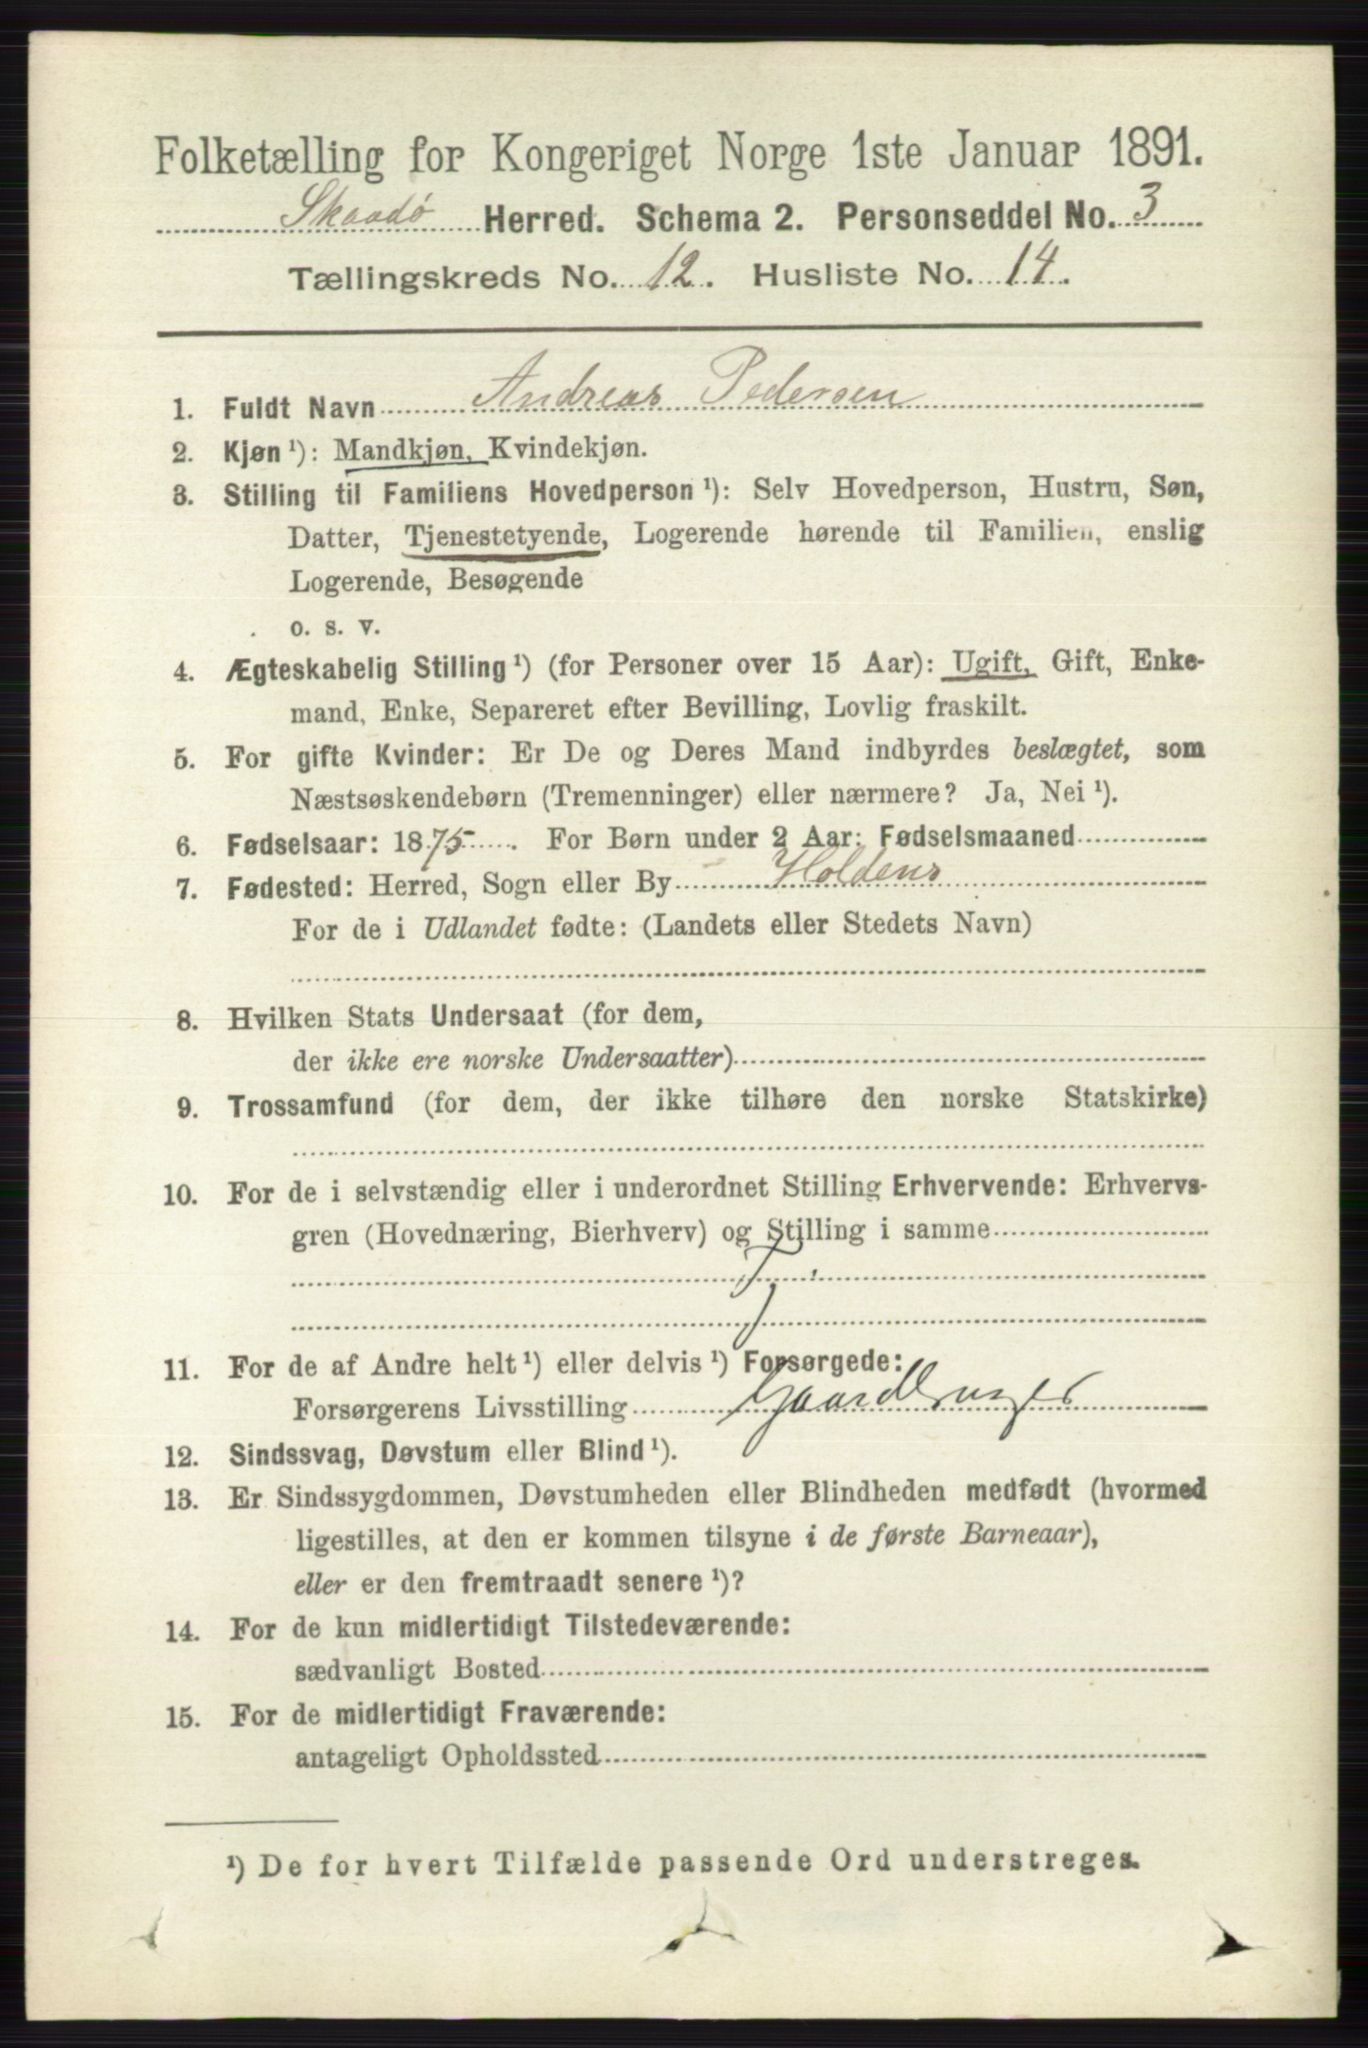 Folketælling for Kongeriget Norge 1ste Januar 1891.
Skaadø Herred. Schema 2. Personseddel No. 3
Tællingskreds No. 12. Husliste No. 14.
1. Fuldt Navn Andreas Pedersen
2. Kjøn ¹): Mandkjøn, Kvindekjøn.
3. Stilling til Familiens Hovedperson ¹): Selv Hovedperson, Hustru, Søn,
Datter, Tjenestetyende, Logerende hørende til Familien, enslig
Logerende, Besøgende
o. s. v.
4. Ægteskabelig Stilling ¹) (for Personer over 15 Aar): Ugift, Gift, Enke-
mand, Enke, Separeret efter Bevilling, Lovlig fraskilt.
5. For gifte Kvinder: Er De og Deres Mand indbyrdes beslægtet, som
Næstsøskendebørn (Tremenninger) eller nærmere? Ja, Nei ¹).
6. Fødselsaar: 1875. For Børn under 2 Aar: Fødselsmaaned
7. Fødested: Herred, Sogn eller By Holdens
For de i Udlandet fødte: (Landets eller Stedets Navn)
8. Hvilken Stats Undersaat (for dem,
der ikke ere norske Undersaatter)
9. Trossamfund (for dem, der ikke tilhøre den norske Statskirke)
10. For de i selvstændig eller i underordnet Stilling Erhvervende: Erhvervs-
gren (Hovednæring, Bierhverv) og Stilling i samme
11. For de af Andre helt ¹) eller delvis ¹) Forsørgede:
Forsørgerens Livsstilling Gaardbruger
12. Sindssvag, Døvstum eller Blind ¹).
13. Er Sindssygdommen, Døvstumheden eller Blindheden medfødt (hvormed
ligestilles, at den er kommen tilsyne i de første Barneaar),
eller er den fremtraadt senere ¹)?
14. For de kun midlertidigt Tilstedeværende:
sædvanligt Bosted
15. For de midlertidigt Fraværende:
antageligt Opholdssted
¹) De for hvert Tilfælde passende Ord understreges.